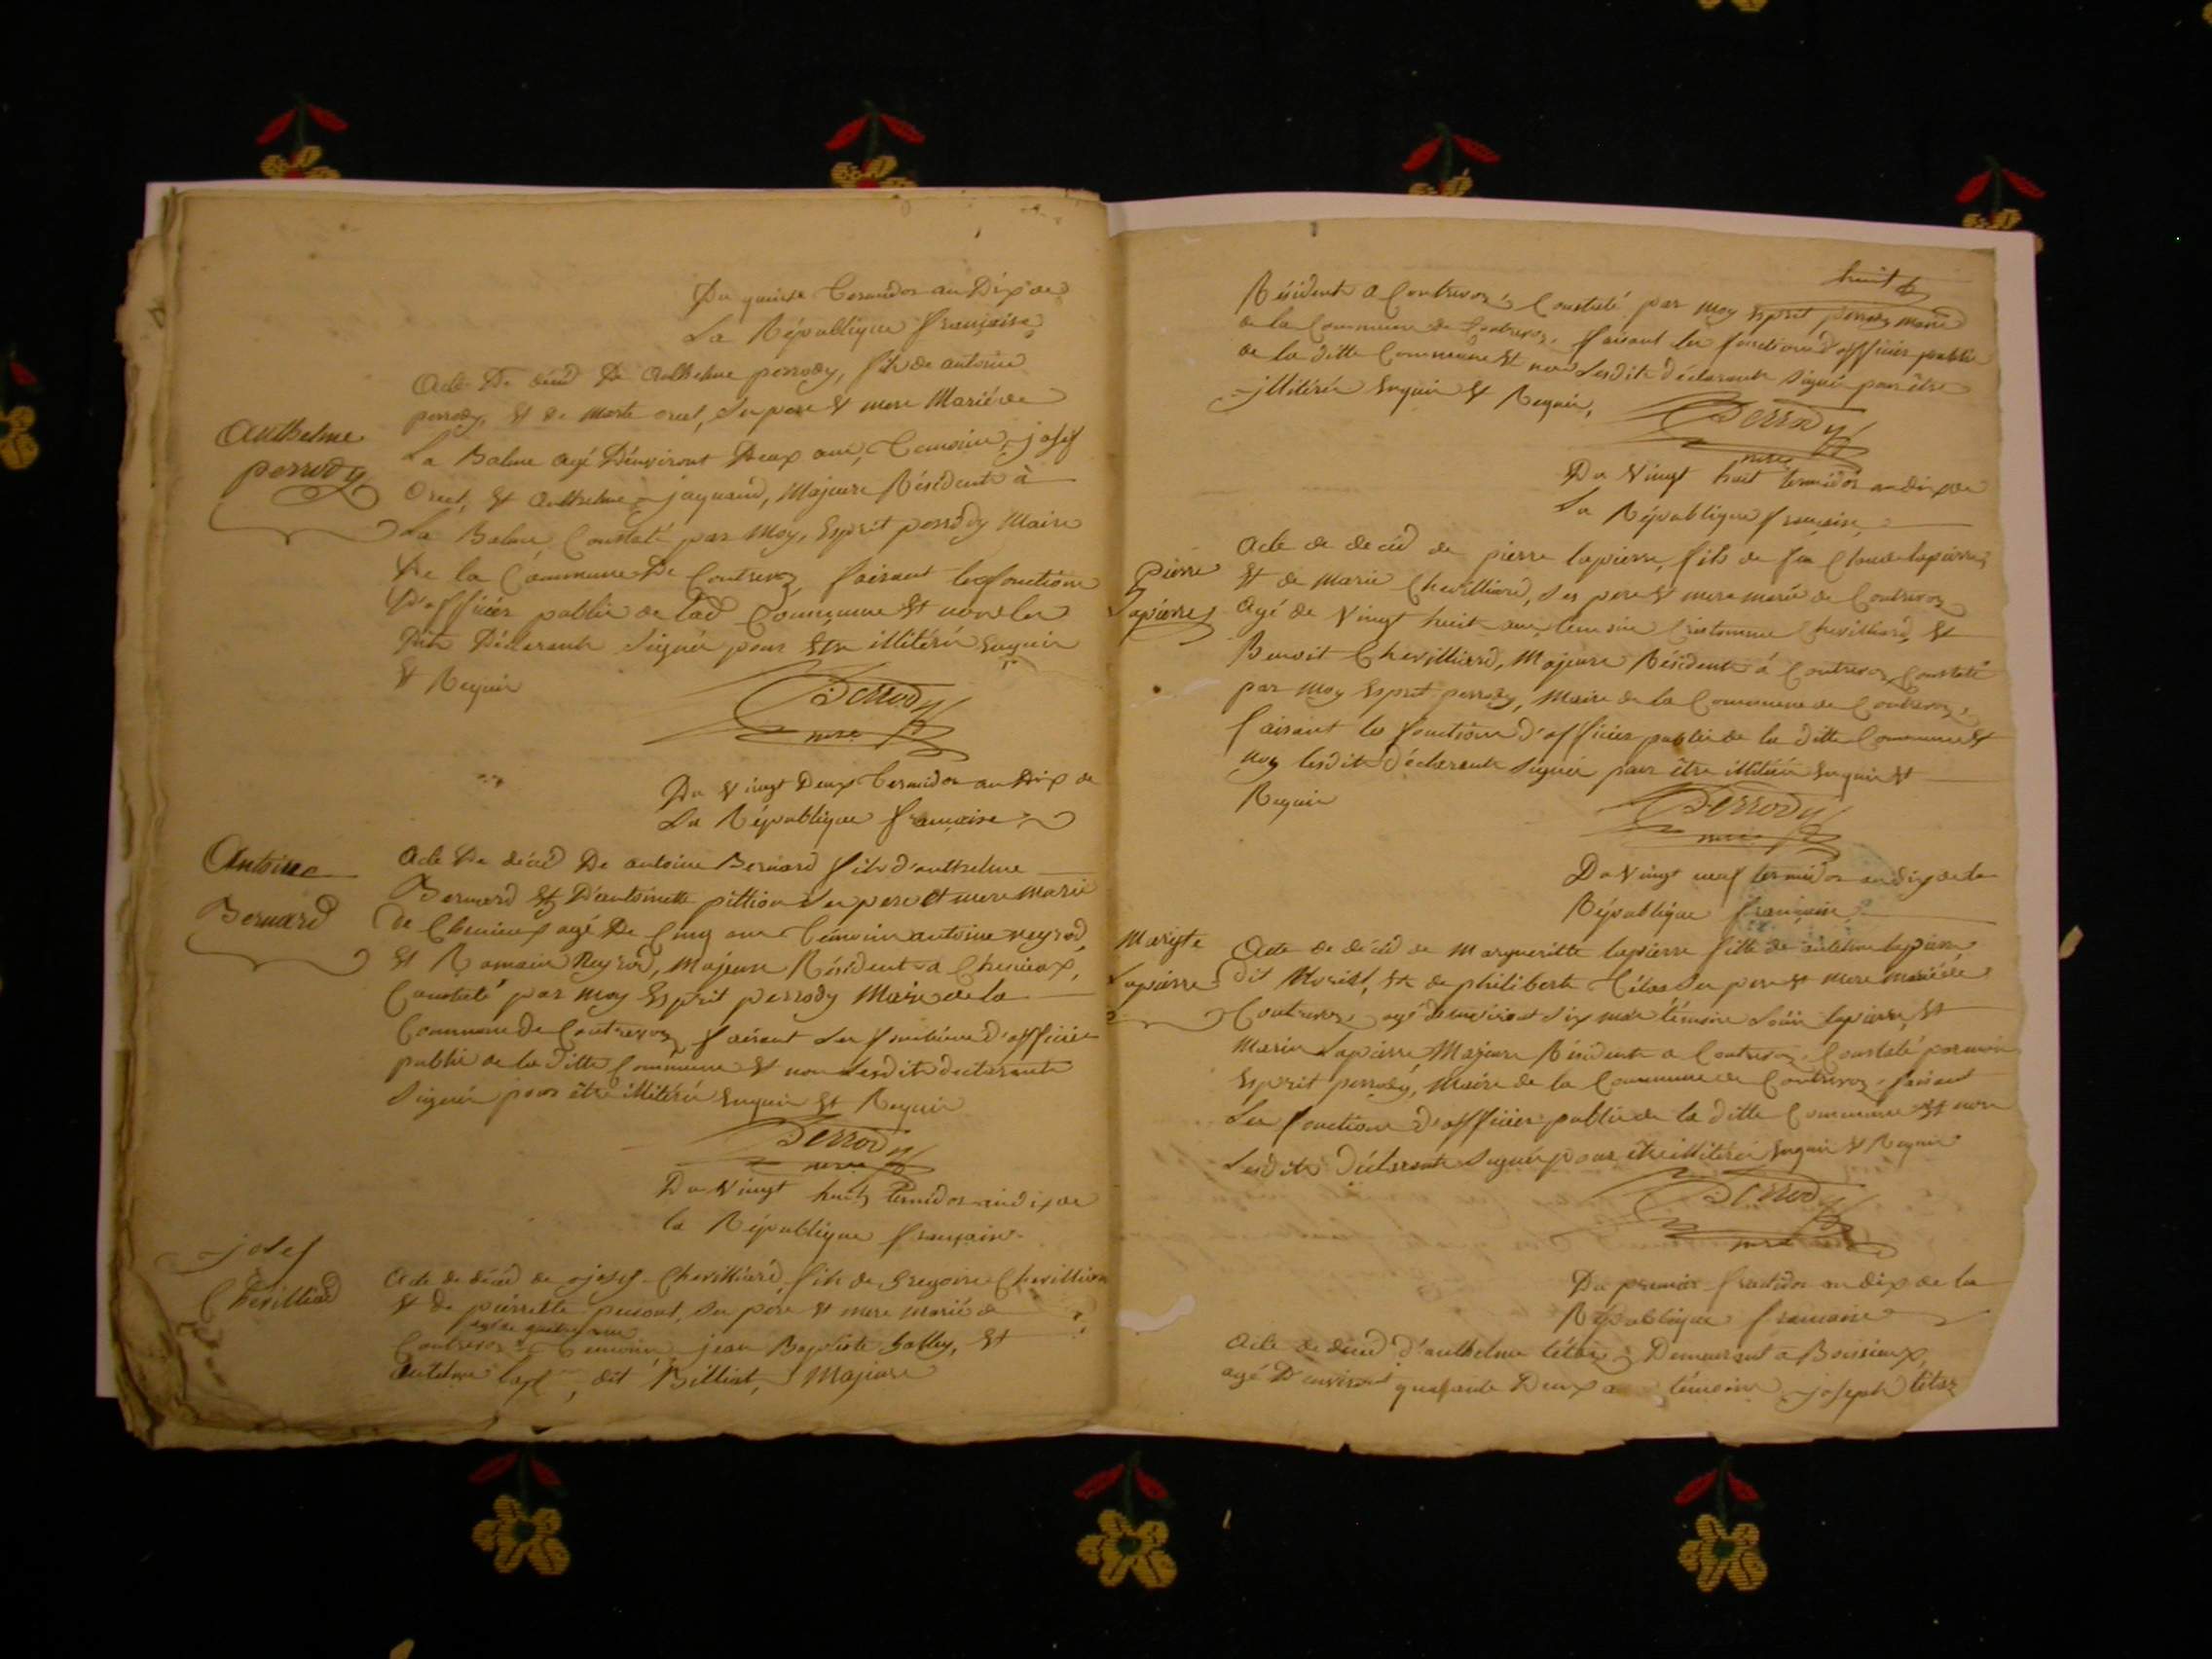 Du quinze termidor an Dix de
La République française
Acte De décéd De Anthelme perrody, fils de antoine
perrody, et de Marte oret, Ses pere et mere Mariés de
Anthelme
perrody
La Balme agé D'environt Deux ans, Temoins, josef
oret, et Anthelme jaquand, Majeurs Résidents à
La Balme, Constaté par Moy, Esprit perrody Maire
De la Commune De Contrevoz, faisant les fonctions
D'officier public de lad Commune et non les
Dits Déclarants Signés pour Etre illitérés Enquis
et Requis
Perrody
mre
Du Vingt Deux Termidor an Dix de
La République française
Antoine
Bernard
Acte De décéd De antoine Bernard fils d'anthelme
Bernard Et D'antoinette pittion Ses pere et mere Mariés
de Chenieux agé De Cinq ans Témoins antoine neyrod,
et Romain Neyrod, Majeurs Résidents a Chenieux,
Constaté par Moy Esprit perrody Maire de la
Commune de Contrevoz faisant Les fonctions d'officier
public de la Ditte Commune et non Lesdits declarants
Signés pour être illitérés Enquis et Requis
Perrody
mre
Du Vingt huit termidor an dix de
la République française
josef
Chevilliard
Acte de décéd de josef Chevilliard, fils de Gregoire Chevilliard
et de pierrette, Ses père et mere mariés de
agé de quatre ans
Contrevoz Temoins jean Baptiste Gallay, et
Antelme, dit Billiet, Majeurs
huit
Résidents a Contrevoz, Constaté par moy Esprit perrody Maire
de la Commune de Contrevoz, faisant les fonctions d'officier public
de la ditte Commune et non Lesdits déclarants Signés pour être
illitérés Enquis et Requis,
Perrody
mre
Du Vingt huit termidor an dix de
La République française
Pierre
Lapierre
Acte de decéd de pierre lapierre, fils de feu Claude lapierre
et de Marie Chevilliard, Ses pere et mere mariés de Contrevoz
Agé de Vingt huit ans, temoins Cristomme Chevilliard, et
Benoit Chevilliard, Majeurs Résidents à Contrevoz, Constaté
par Moy Esprit perrody, Maire de la Commune de Contrevoz,
faisant les fonctions d'officier public de la ditte Commune et
non lesdits Déclarants Signés pour être illitérés Enquis et
Requis
Perrody
mre
Du Vingt neuf termidor an dix de la
République française
Margte
Lapierre
Acte de décéd de Margueritte lapierre fille de antelme lapierre
dit, et de philiberte Tétaz Ses pere et mere mariés de
Contrevoz, agé d'environt Six mois témoins Loüis lapierre, et
Marin Lapierre, Majeurs Résidents a Contrevoz, Constaté par moi
Esprit perrody, Maire de la Commune de Contrevoz, faisant
Les fonctions d'officier public de la ditte Commune et non
Lesdits Déclarants Signés pour être illitérés Enquis et Requis
Perrody
mre
Du premier fructidor an dix de la
République française
Acte de décéd d'anthelme tétaz Demeurant a Boissieux,
agé D'environt quarante Deux témoins joseph tétaz